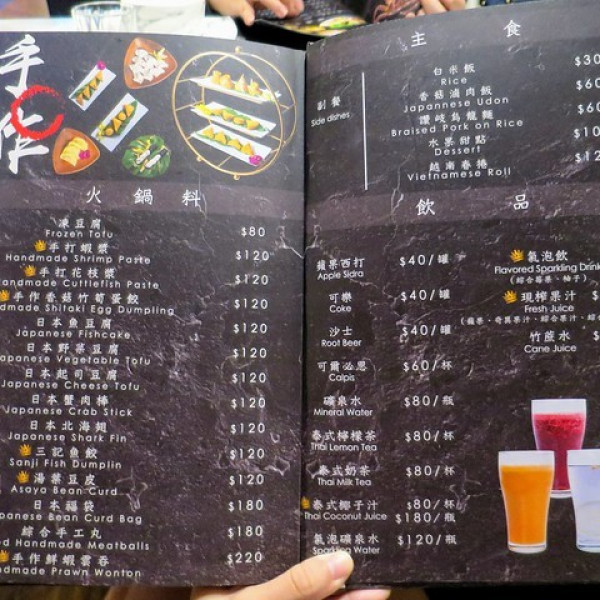 手作
火鍋料
凍豆腐
Frozen Tofu $80
手打蝦漿
Handmade Shrimp Paste $120
手打花枝漿
andmade Cuttlefish Paste $120
手作香菇竹荀蛋餃
dmade Shitaki Egg Dumpling $120
日本魚豆腐
Japanese Fishcake $120
日本野菜豆腐
apanese Vegetable Tofu $120
日本起司豆腐
apanese Cheese Tofu $120
日本蟹肉棒
Japanese Crab Stick $120
日本北海翅
Japanese Shark Fin $120
三記魚餃
Sanji Fish Dumplin $120
湯葉豆皮
Asaya Bean Curd $120
日本福袋
panese Bean Curd Bag $180
綜合手工丸
ed Handmade Meatballs $180
手作鮮蝦雲吞
ndmade Prawn Wonton $220
主食
副餐
Side dishes
白米飯
Rice $30
香菇滷肉飯
Japannese Udon $60
讚岐烏龍麵
Braised Pork on Rice $60
水果甜點
Dessert $10
越南春捲
Vietnamese Roll $12
飲品
蘋果西打 $40/罐
Apple Sidra
可樂 $40/罐
Coke
沙士 $40/罐
Root Beer
可爾必思 $60/杯
Calpis
礦泉水 $80/瓶
Mineral Water
泰式檸檬茶 $80/杯
Thai Lemon Tea
泰式奶茶 $80/杯
Thai Milk Tea
泰式椰子汁 $80/杯
Thai Coconut Juice $180/瓶
氣泡礦泉水 $120/瓶
Sparkling Water
氣泡飲
Flavored Sparkling Drink
(綜合莓果、柚子)
現榨果汁 $
Fresh Juice
(蘋果、奇異果汁、綜合果汁、綜合
竹蔗水 $
Cane Juice